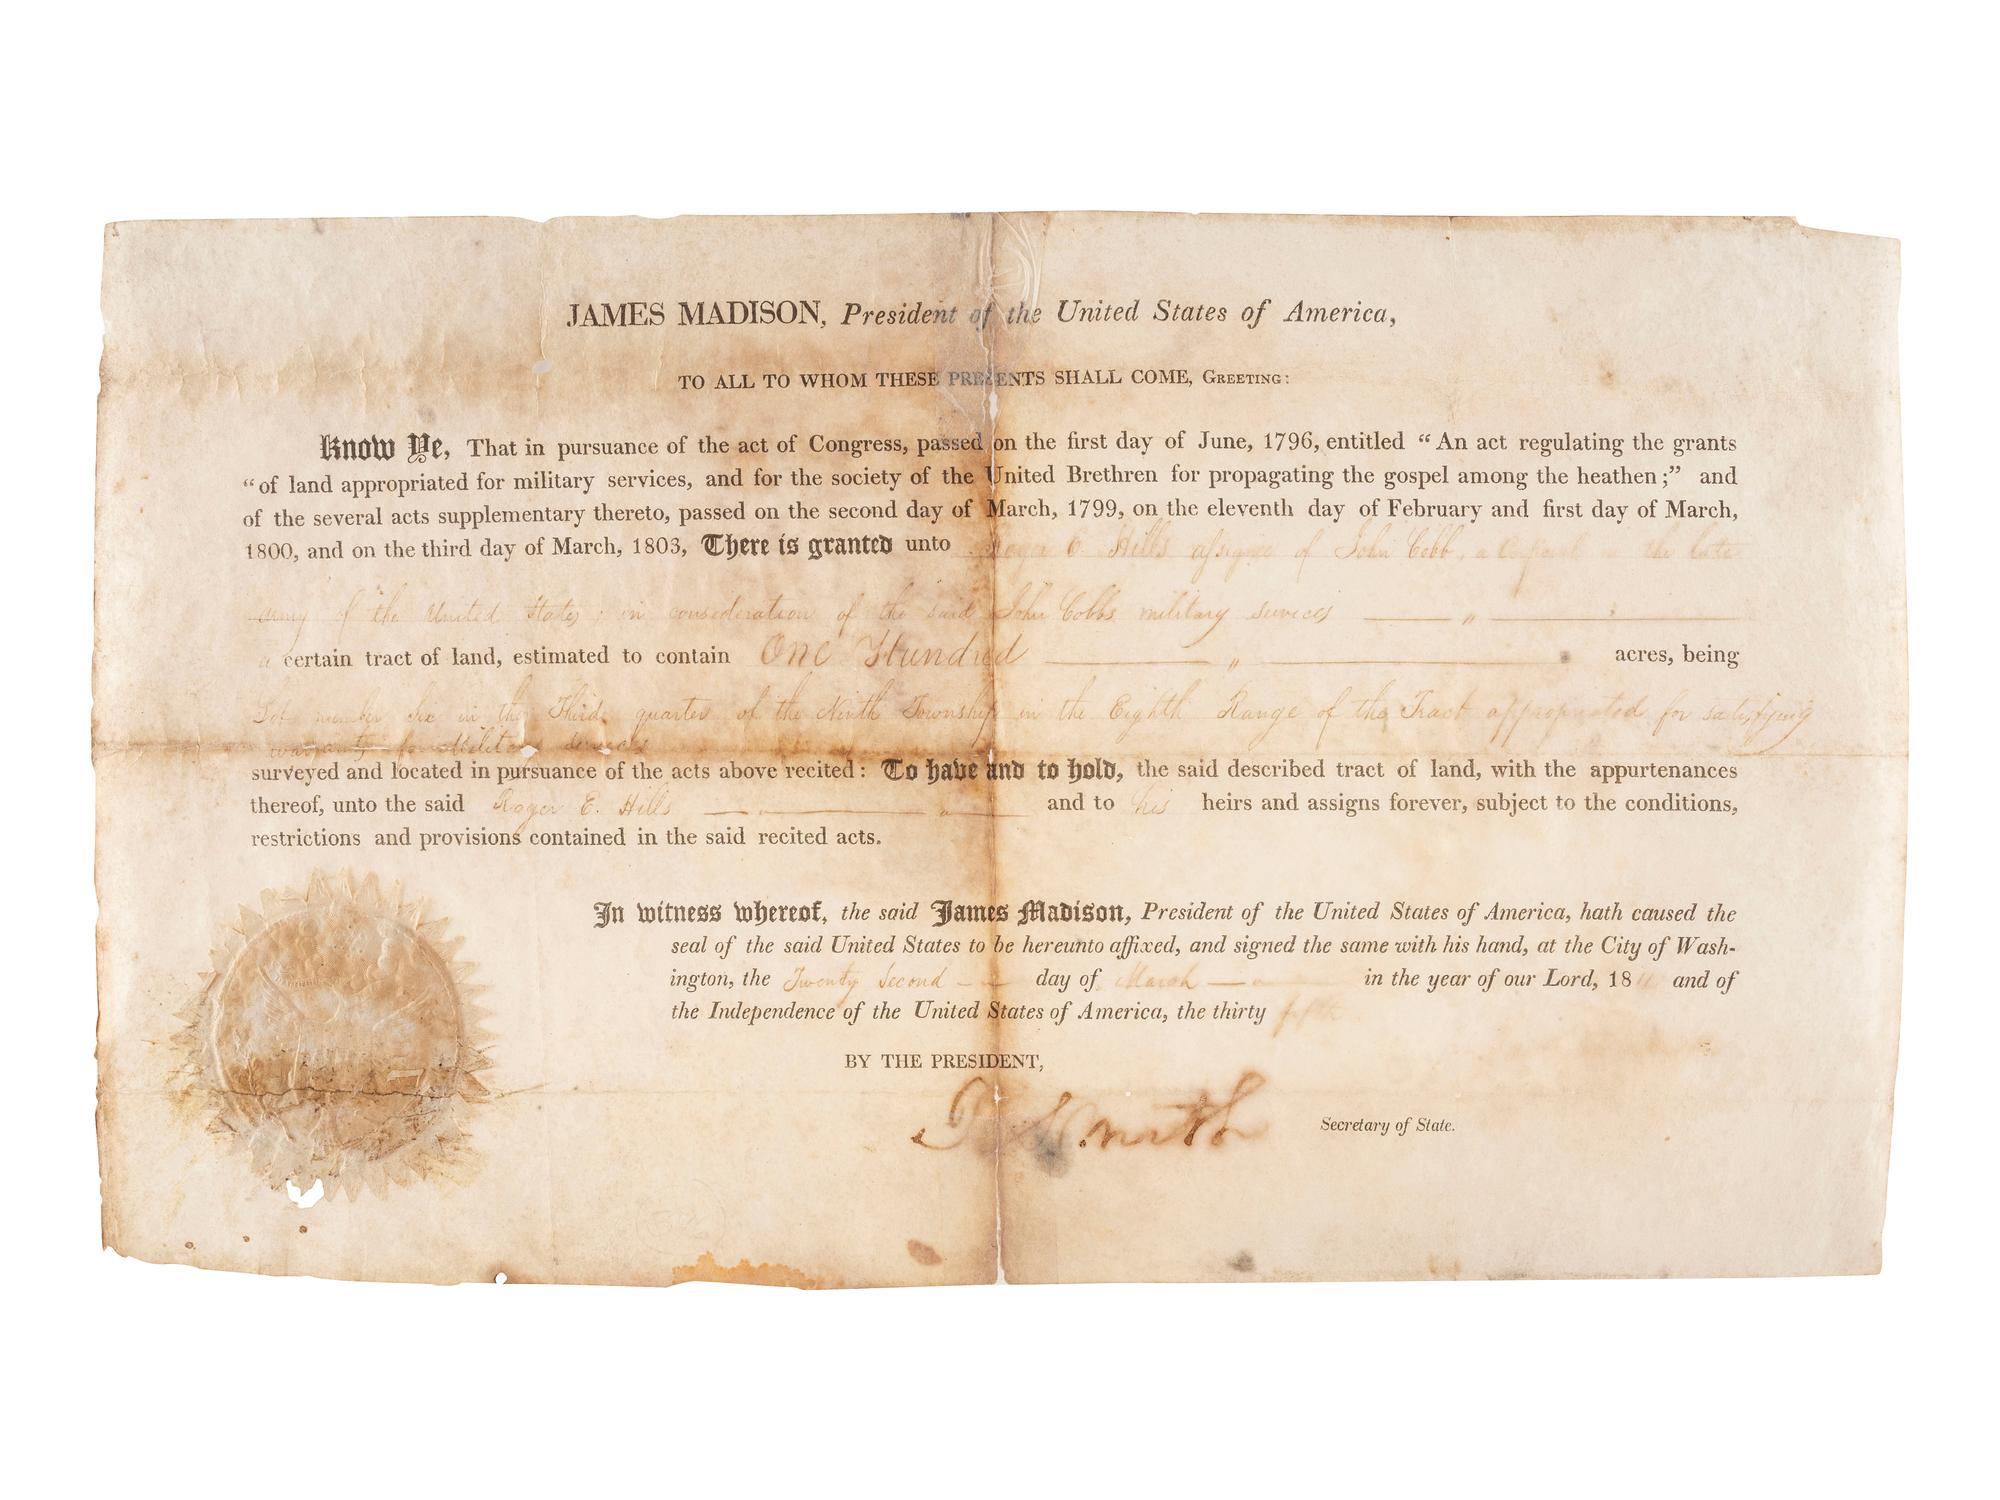 JAMES MADISON, President of the United States of America,
TO ALL TO WHOM THESE PRESENTS SHALL COME, GREETING:
Know Ye, That in pursuance of the act of Congress, passed on the first day of June, 1796, entitled “An act regulating the grants
“of land appropriated for military services, and for the society of the United Brethren for propagating the gospel among the heathen;” and
of the several acts supplementary thereto, passed on the second day of March, 1799, on the eleventh day of February and first day of March,
1800, and on the third day of March, 1803, There is granted unto Roger E. Hills assignee of John Cobb, a in the late
army of the United States; in consideration of the said John Cobbs military services
a certain tract of land, estimated to contain One Hundred acres, being
Lot number Six in the Third quarter of the Ninth Township in the Eighth Range of the Tract appropriated for satisfying
warrants for Military services
surveyed and located in pursuance of the acts above recited: To have and to hold, the said described tract of land, with the appurtenances
thereof, unto the said Roger E. Hills and to his heirs and assigns forever, subject to the conditions,
restrictions and provisions contained in the said recited acts.
In witness whereof, the said James Madison, President of the United States of America, hath caused the
seal of the said United States to be hereunto affixed, and signed the same with his hand, at the City of Wash-
ington, the Twenty Second day of March in the year of our Lord, 1811 and of
the Independence of the United States of America, the thirty fifth
BY THE PRESIDENT,
R Smith Secretary of State.